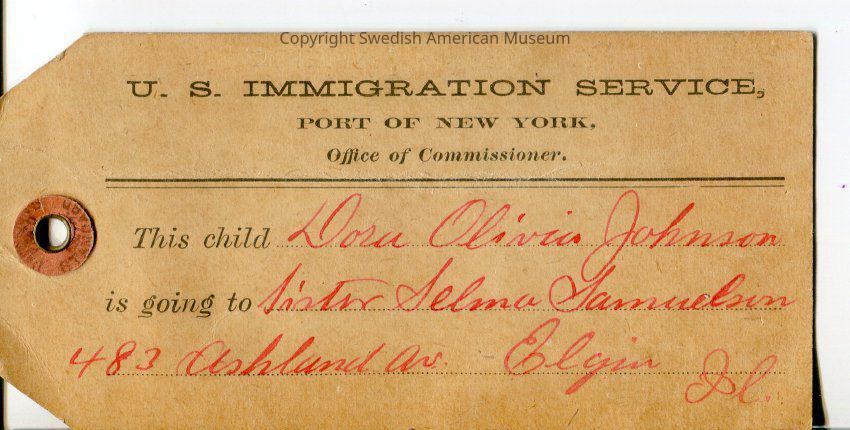 Copyright Swedish American Museum
U. S. IMMIGRATION SERVICE,
PORT OF NEW YORK,
Office of Commissioner.
This child Dora Olivia Johnson
is going to Sister Selma Samuelson
483 Ashland Av. Elgin
Il.